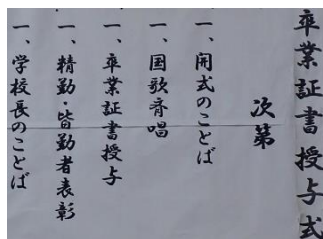 卒業証書授与式
次第
一、開式のことば
一、国歌斉唱
一、卒業証書授与
一、精勤・皆勤者表彰
一、学校長のことば